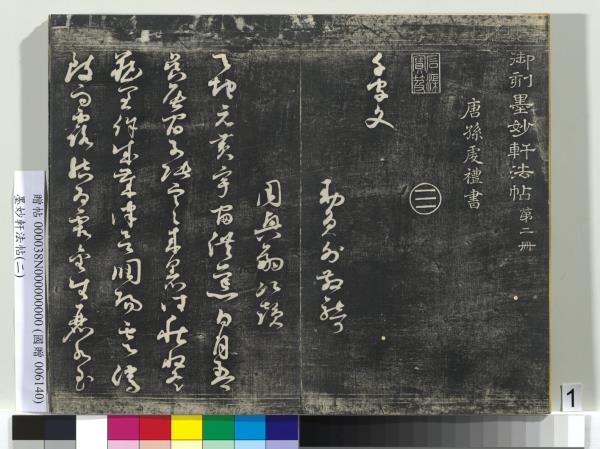 御刻墨妙軒法帖 第二册
唐孫虔禮書
石渠寶笈
千字文
勅員外散騎
周興嗣次韻
天地元黄宇宙洪荒日月盈
昃辰宿列張寒來暑往秋收冬
藏閏餘成歲律呂調陽雲騰
致雨露結為霜金生麗水玉
贈帖 000038N000000000 (國贈 006140)
墨妙軒法帖(二)
1